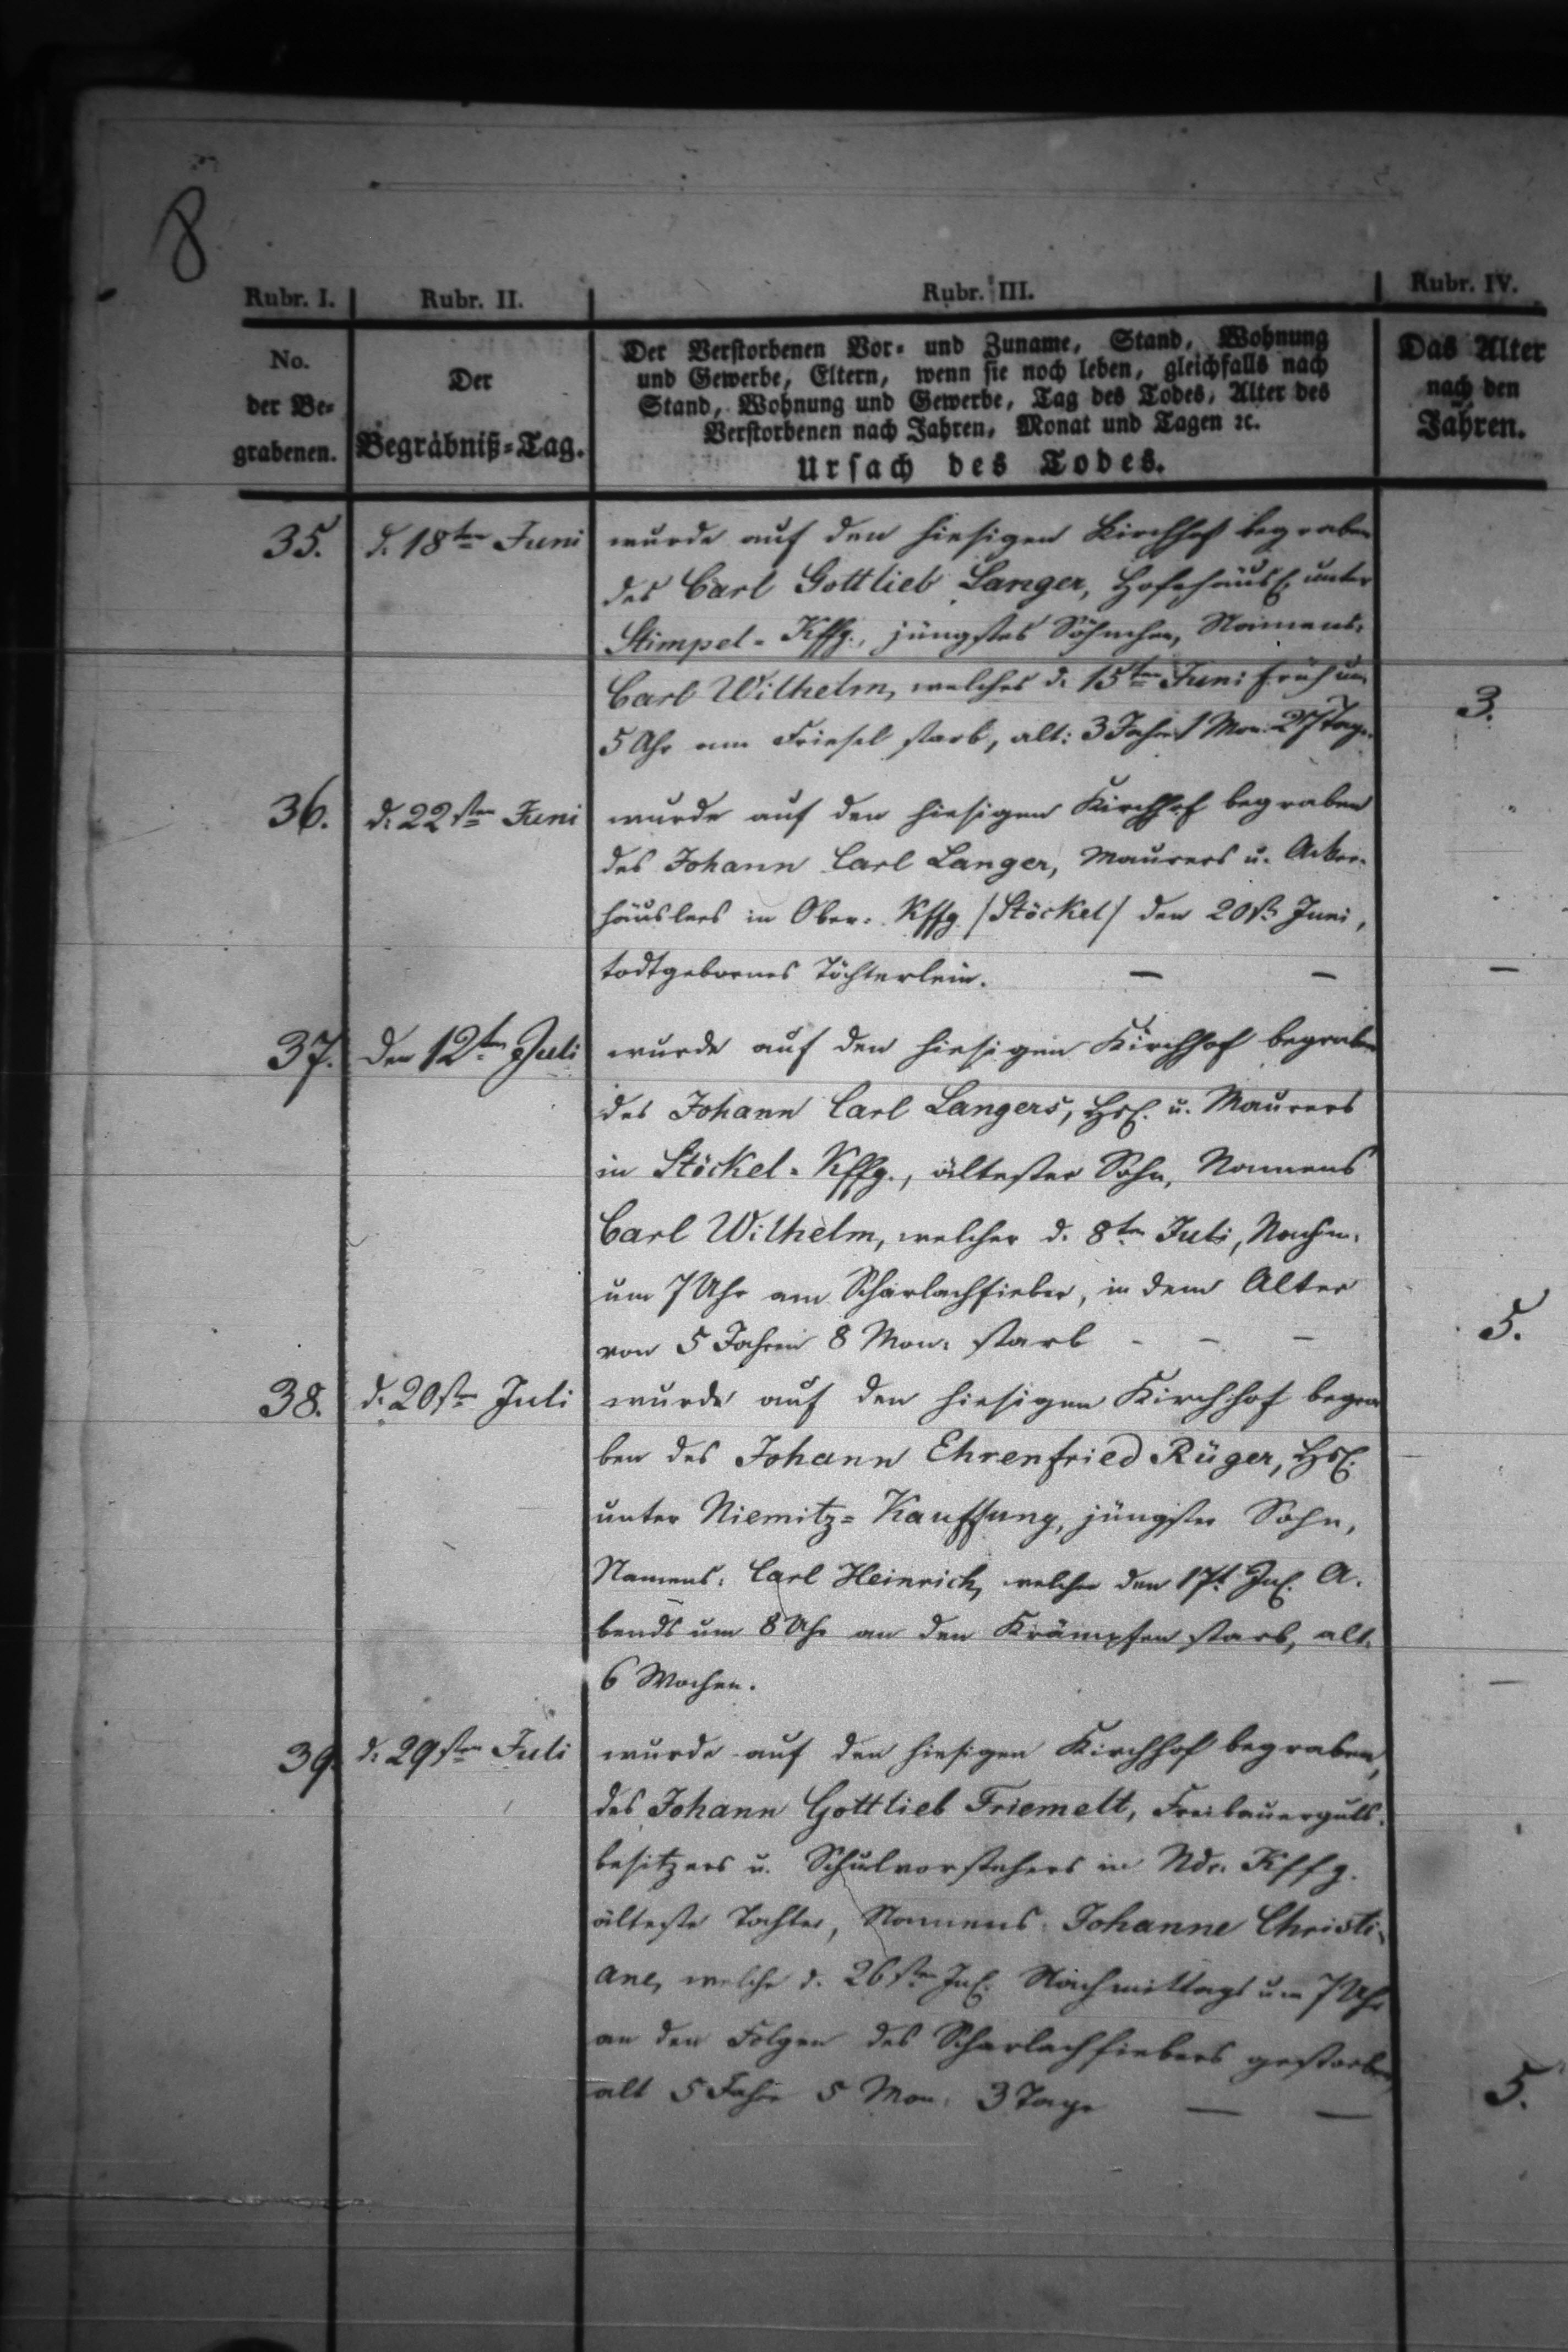 8
Rubr. I. Rubr. II. Rubr. III. Rubr. IV.
No.
der Be-
grabenen.
Der
Begräbniß-Tag.
Der Verstorbenen Vor- und Zuname, Stand, Wohnung
und Gewerbe, Eltern, wenn sie noch leben, gleichfalls nach
Stand, Wohnung und Gewerbe, Tag des Todes, Alter des
Verstorbenen nach Jahren, Monat und Tagen ꝛc.
Ursach des Todes.
Das Alter
nach den
Jahren.
35. d. 18ten Juni wurde auf den hiesigen Kirchhof begraben
des Carl Gottlieb Langer, Hofehäusl. unter
Stimpel-Kffg., jüngstes Söhnchen, Namens:
Carl Wilhelm, welches d. 15ten Juni früh um
5 Uhr am Friesel starb, alt: 3 Jahr 1 Mon. 27 Tage. 3.
36. d. 22sten Juni wurde auf den hiesigen Kirchhof begraben
des Johann Carl Langer, Maurers u. Acker-
häuslers in Ober-Kffg. /Stöckel/ den 20st. Juni,
todtgebornes Töchterlein. — — —
37. den 12ten Juli wurde auf den hiesigen Kirchhof begraben
des Johann Carl Langers, Hsl. u. Maurers
in Stöckel-Kffg., ältester Sohn, Namens
Carl Wilhelm, welcher d. 8ten Juli, Nachm.
um 7 Uhr am Scharlachfieber, in dem Alter
von 5 Jahren 8 Mon: starb - - - 5.
38. d. 20sten Juli wurde auf den hiesigen Kirchhof begra
ben des Johann Ehrenfried Rüger, Hsl.
unter Niemitz-Kauffung, jüngster Sohn,
Namens: Carl Heinrich, welcher den 17t Jul. A-
bends um 8 Uhr an den Krämpfen starb, alt:
6 Wochen. —
39. d. 29sten Juli wurde auf den hiesigen Kirchhof begraben,
des Johann Gottlieb Friemelt, Freibauerguts-
besitzers u. Schulvorstehers in Ndr. Kffg.
älteste Tochter, Namens: Johanne Christi-
ane, welche d. 26sten Jul. Nachmittags um 7 Uhr
an den Folgen des Scharlachfiebers gestorben,
alt 5 Jahr 5 Mon. 3 Tage — — 5.